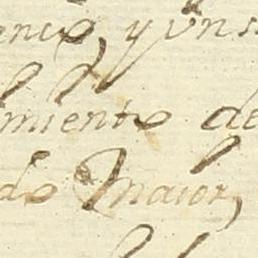 encia, y un s
miento de
do maior,